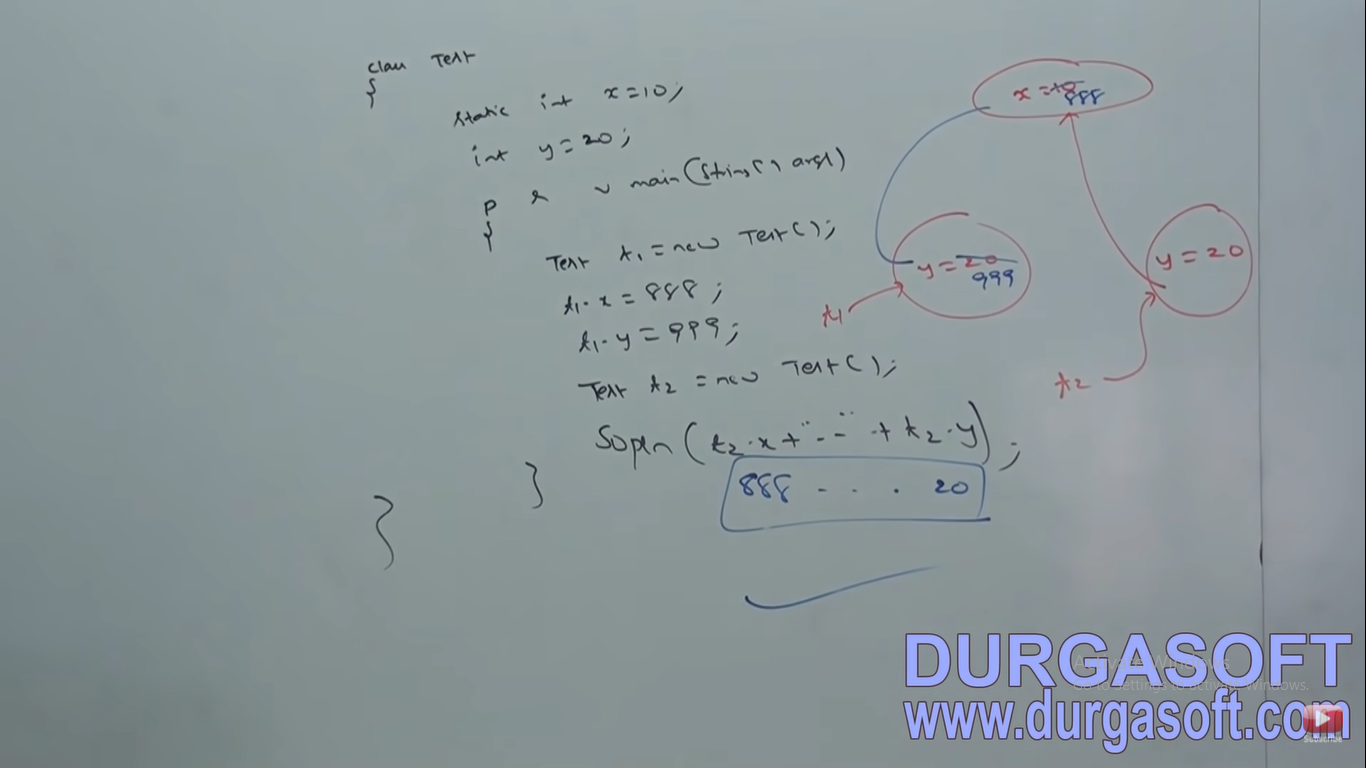 class Test
{
static int x=10;
int y=20;
p s v main(String[] args)
{
Test t1 = new Test();
t1.x = 888;
t1.y = 999;
Test t2 = new Test();
Sopln(t2.x+"--"+t2.y);
}
}
888 . . . 20
x=10
888
y=20
999
y=20
t1
t2
DURGASOFT
www.durgasoft.com
Activate Windows
Go to Settings to activate Windows.
SUBSCRIBE